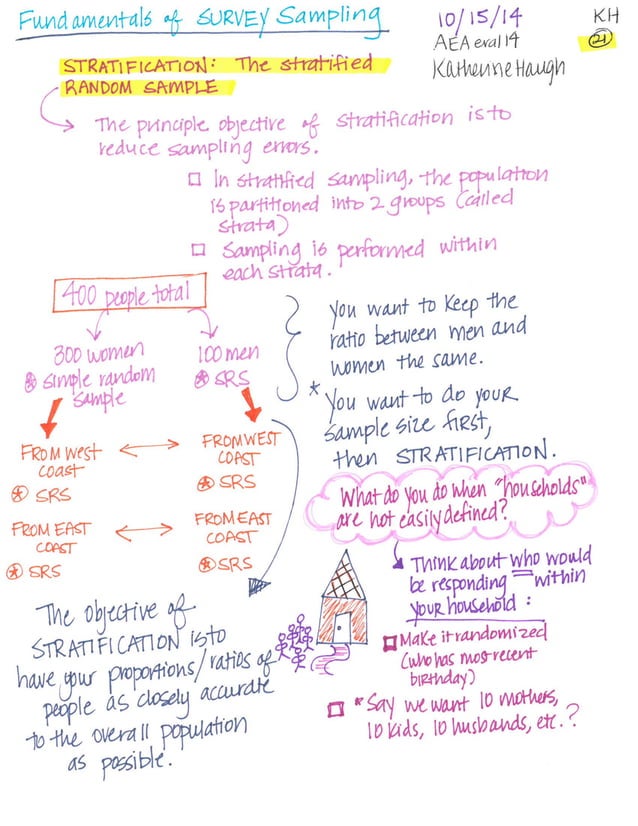 Fundamentals of SURVEY Sampling
10/15/14
KH
AEA eval14
21
Katherine Haugh
STRATIFICATION: The stratified
RANDOM SAMPLE
The principle objective of stratification is to
reduce sampling errors.
In stratified sampling, the population
is partitioned into 2 groups (called
strata)
Sampling is performed within
each strata.
400 people total
300 women
simple random
sample
100 men
SRS
You want to keep the
ratio between men and
women the same.
* You want to do your
sample size first,
then STRATIFICATION.
FROM West
coast
SRS
FROM WEST
COAST
SRS
FROM EAST
COAST
SRS
FROM EAST
COAST
SRS
What do you do when "households"
are not easily defined?
Think about who would
be responding within
your household:
Make it randomized
(who has most recent
birthday)
*Say we want 10 mothers,
10 kids, 10 husbands, etc.?
The objective of
STRATIFICATION is to
have your proportions/ratios of
people as closely accurate
to the overall population
as possible.